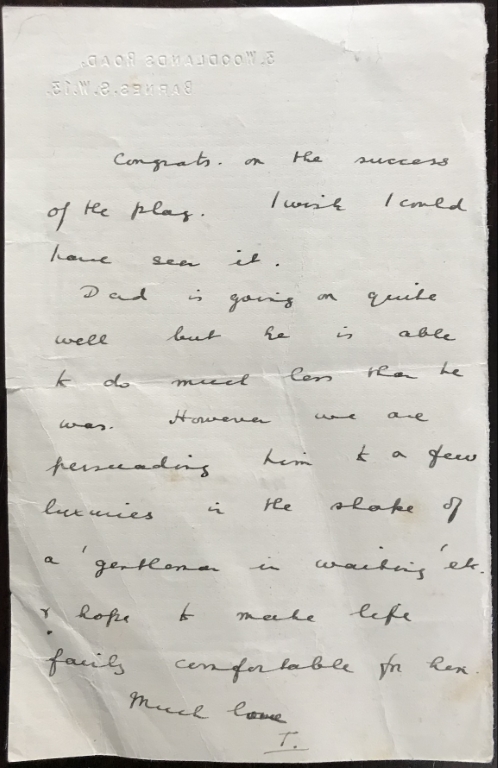 3. WOODLANDS ROAD.
BARNES. S.W.13.
Congrats. on the success
of the play. I wish I could
have seen it.
Dad is going on quite
well but he is able
to do much less than he
was. However we are
persuading him to a few
luxuries in the shape of
a 'gentleman in waiting' etc.
& hope to make life
fairly comfortable for him.
Much love
T.